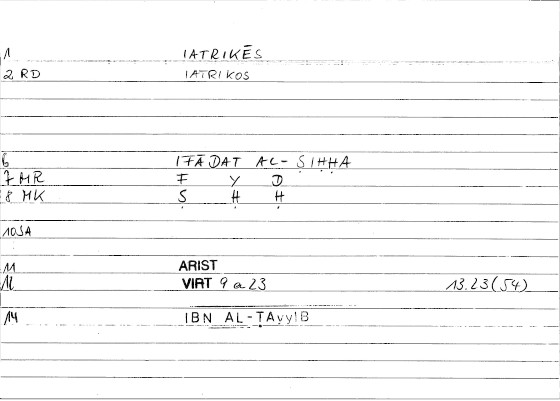 1 IATRIKĒS
2 RD IATRIKOS
6 IFĀDAT AL-ṢIḤḤA
7 HR F Y D
8 MK Ṣ Ḥ Ḥ
10 SA
11 ARIST
12 VIRT 9 a 23 13.23 (54)
14 IBN AL-ṬAyyIB